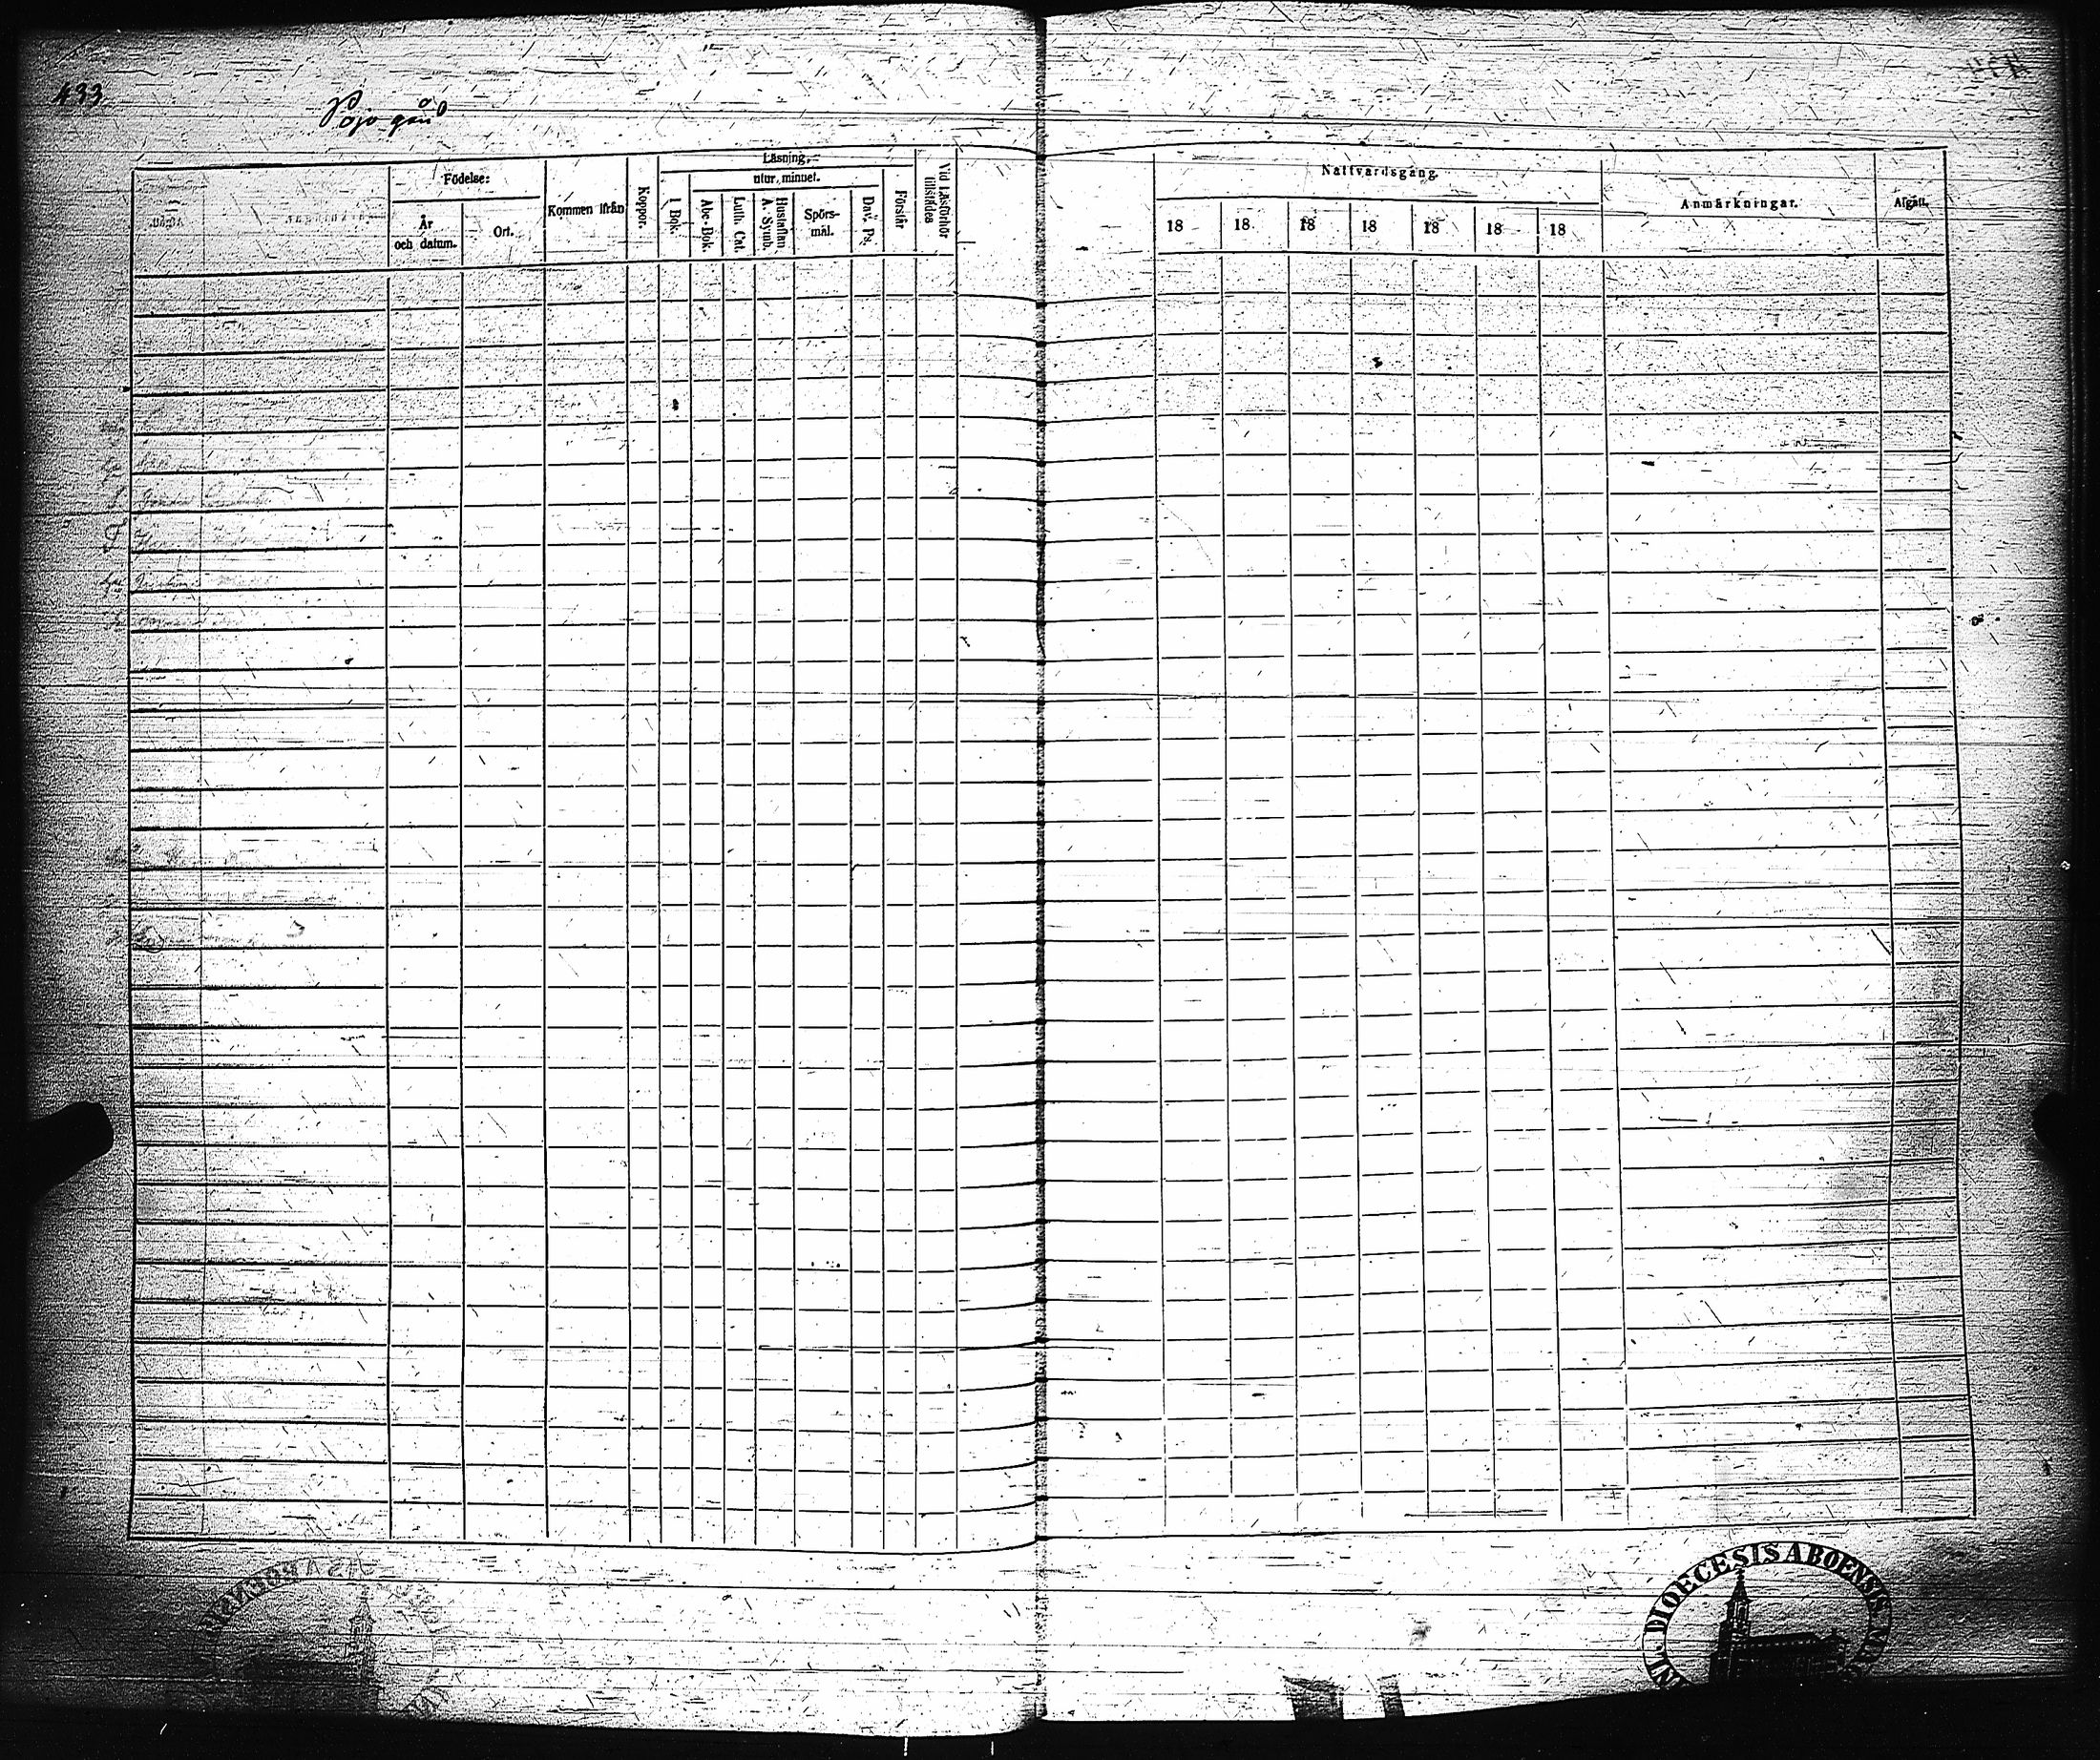 433
Pojo gård
Födelse:
År
och datum.
Ort.
Kommen ifrån
Koppor.
Läsning,
utur minnet.
I Bok.
Abc-Bok.
Luth. Cat.
Hustaflan
A. Symb.
Spörs-
mål.
Dav. Ps.
Förstår
Vid Läsförhör
tillstädes
Nattvardsgång.
18 18 18 18 18 18 18
Anmärkningar.
Afgått.
DIOECESIS ABOENSIS